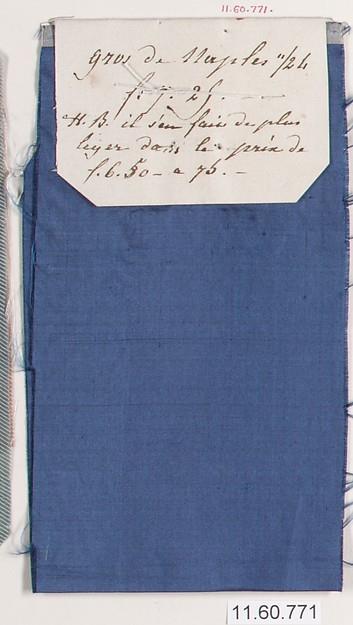 11.60.771.
gros de Naples 11/24
f. 7. 25.
N.B. il s'en fait de plus
leger dans le prix de
f. 6.50 - a 75. -
11.60.771